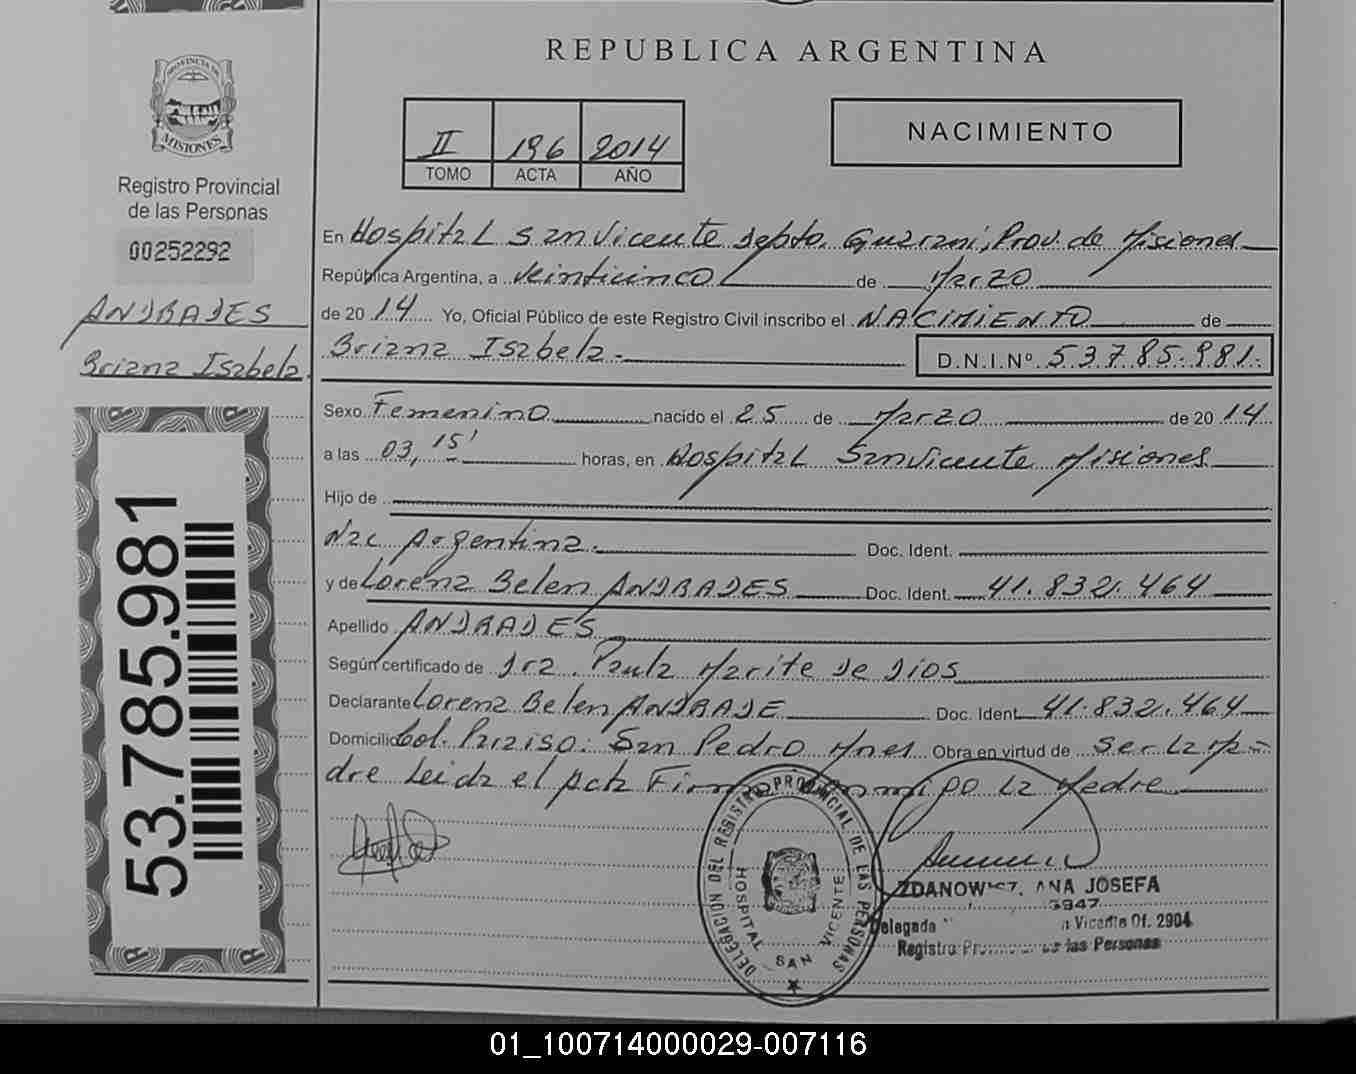 PROVINCIA DE
MISIONES
Registro Provincial
de las Personas
00252292
ANDRADES
Briana Isabela.
53.785.981
REPUBLICA ARGENTINA
II 196 2014
TOMO ACTA AÑO
NACIMIENTO
En Hospital San Vicente Depto. Guarani, Prov. de Misiones
República Argentina, a Veinticinco de Marzo
de 2014 Yo, Oficial Público de este Registro Civil inscribo el NACIMIENTO de
Briana Isabela. D.N.I.Nº 53785.981.
Sexo Femenino nacido el 25 de Marzo de 2014
a las 03,15' horas, en Hospital San Vicente Misiones
Hijo de
Nac Argentina. Doc. Ident.
y de Lorena Belen ANDRADES Doc. Ident. 41.832.464
Apellido ANDRADES
Según certificado de Dra. Paula Marite De Dios
Declarante Lorena Belen ANDRADE Doc. Ident. 41.832.464
Domicilio Col. Paraiso. San Pedro Mnes Obra en virtud de ser La Ma=
dre Leida el Acta Firma conmigo La Madre
DELEGACION DEL REGISTRO PROVINCIAL DE LAS PERSONAS
HOSPITAL SAN VICENTE
ANA JOSEFA
3947
Delegada Vicente Of. 2904
Registro de las Personas
01_100714000029-007116